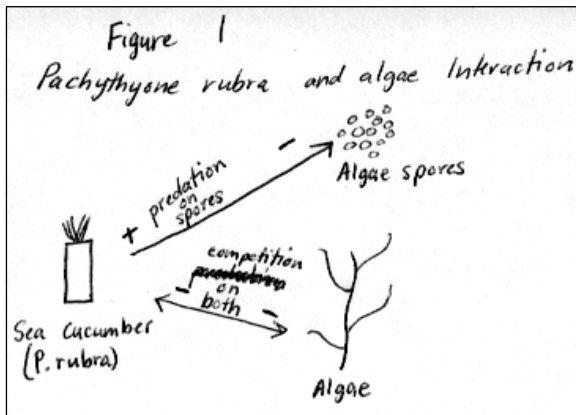 Figure 1
Pachythyone rubra and algae Interaction
-
Algae spores
+
predation
on
spores
competition
on
both
-
-
Sea Cucumber
(P. rubra)
Algae